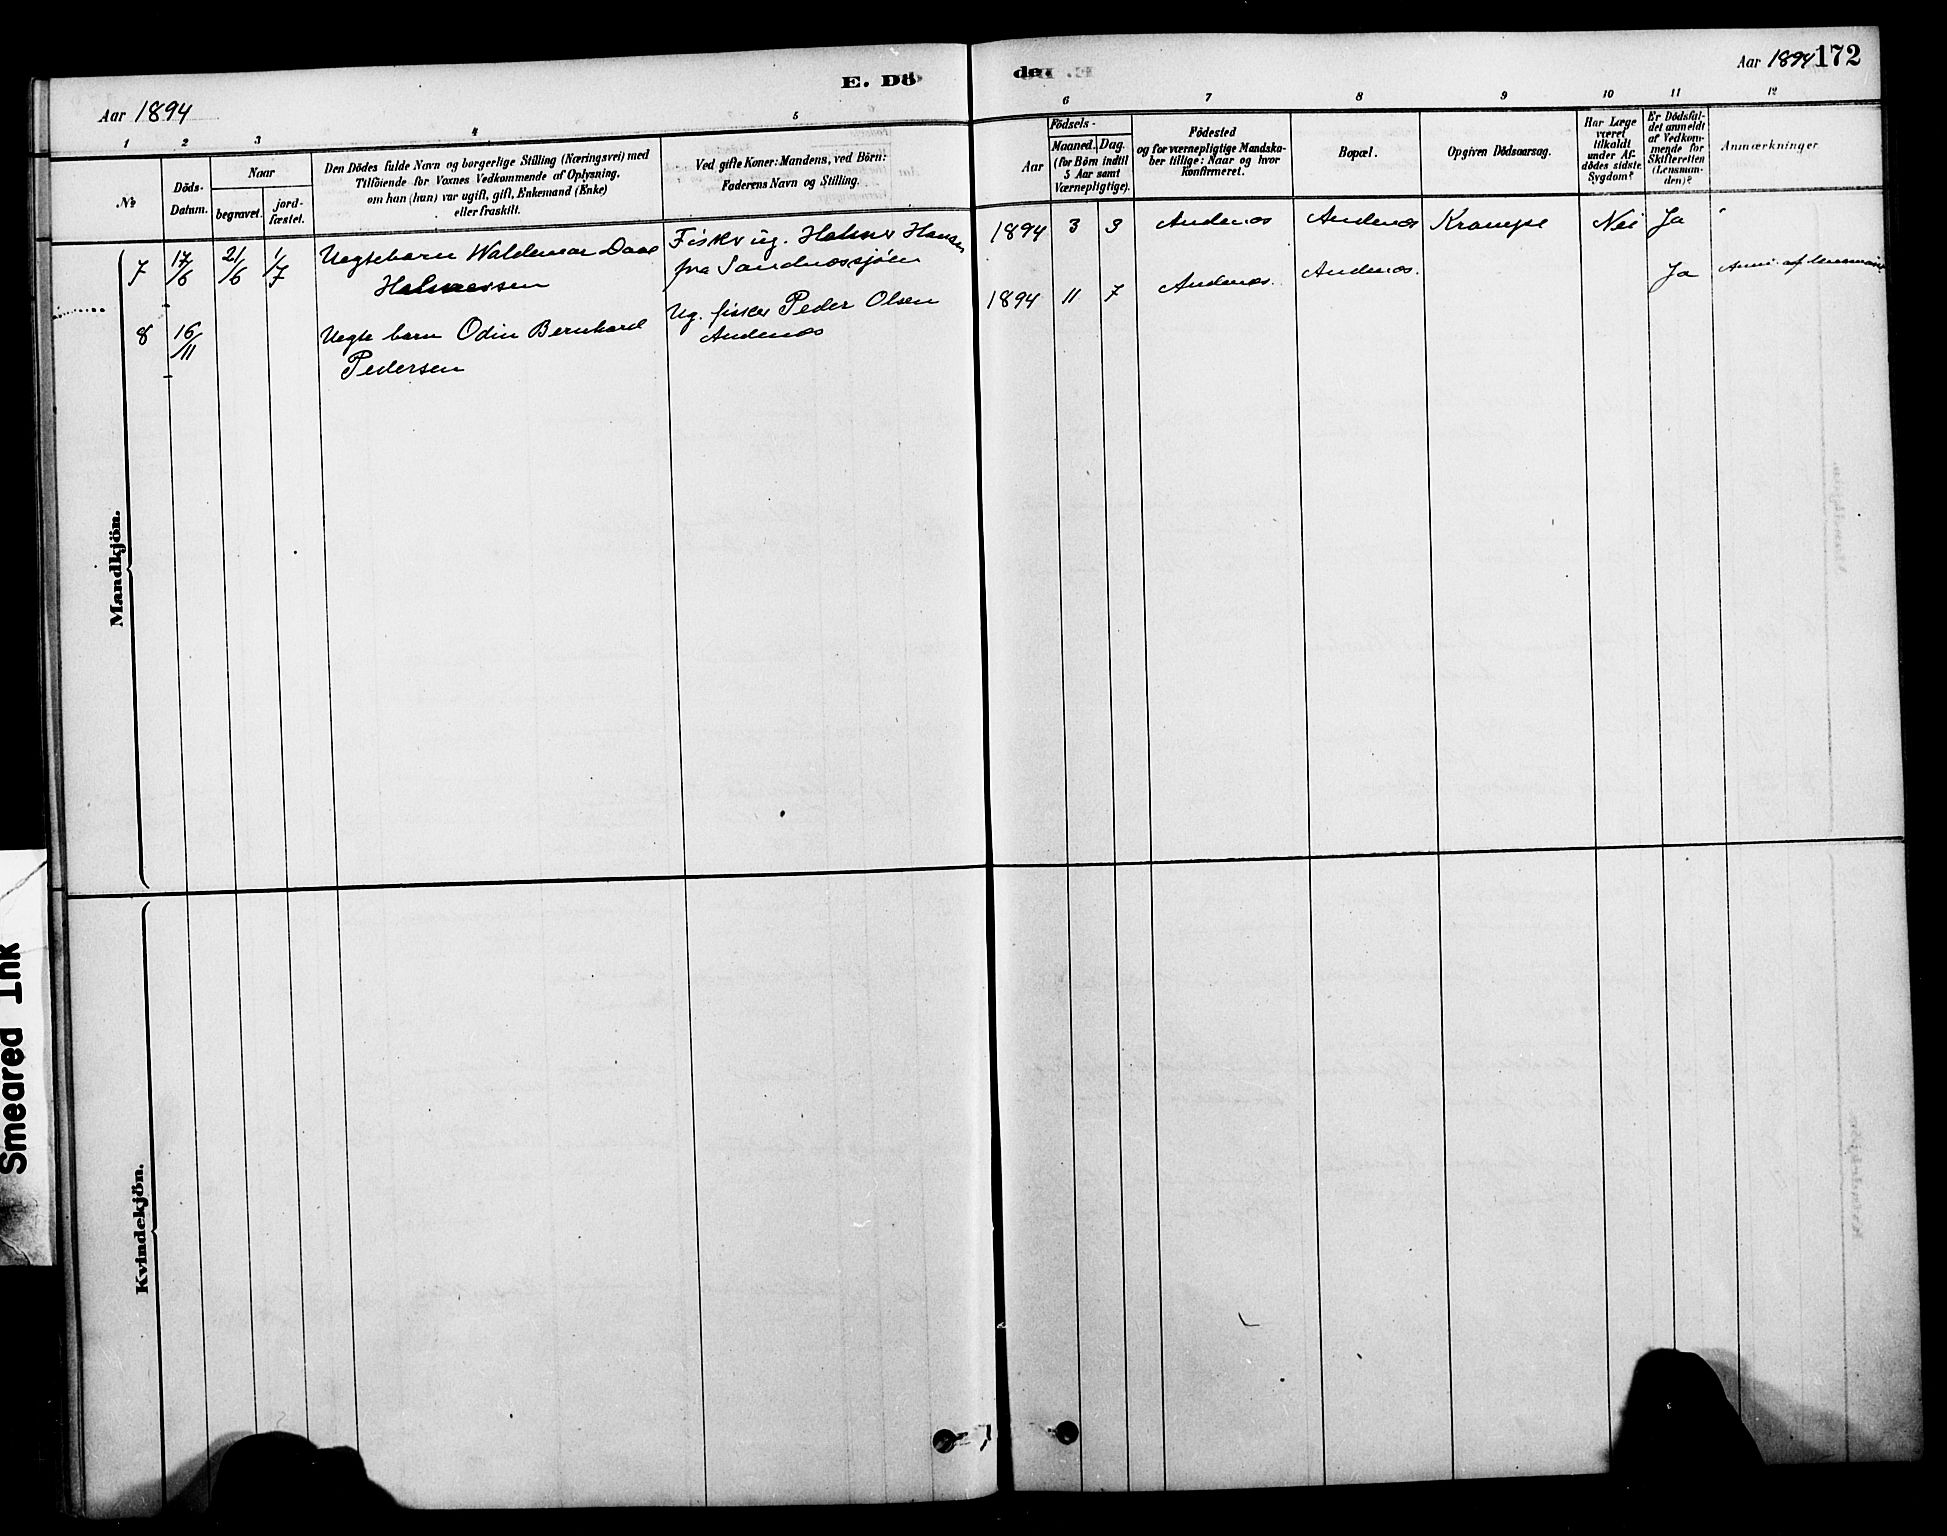 E. Dö
de.
Aar 1894
Aar 1894 172
1
2
3
4
5
6
7
8
9
10
11
12
No
Döds-
Datum.
Naar
begravet.
jord-
fæstet.
Den Dödes fulde Navn og borgerlige Stilling (Næringsvei) med
Tilföiende for Voxnes Vedkommende af Oplysning,
om han (hun) var ugift, gift, Enkemand (Enke)
eller fraskilt.
Ved gifte Koner: Mandens, ved Börn:
Faderens Navn og Stilling.
Födsels-
Aar
Maaned.
Dag.
(for Börn indtil
5 Aar samt
Værnepligtige).
Födested
og for værnepligtige Mandska-
ber tillige: Naar og hvor
konfirmeret.
Bopæl.
Opgiven Dödsaarsag.
Har Læge
været
tilkaldt
under Af-
dödes sidste
Sygdom?
Er Dödsfal-
det anmeldt
af Vedkom-
mende for
Skifteretten
(Lensman-
den)?
Anmærkninger
7 17/6 21/6 1/7 Uegtebarn Waldemar Daae Fisker ug. Halvor Hansen 1894 3 3 Andenæs Andenæs Krampe Nei Ja
fra Sandnessjøen
8 16/11 Uegte barn Odin Bernhard Ug. fisker Peder Olsen 1894 11 7 Andenæs. Andenæs. Ja
Pedersen Andenæs
Mandkjön.
Kvindekjön.
Smeared Ink